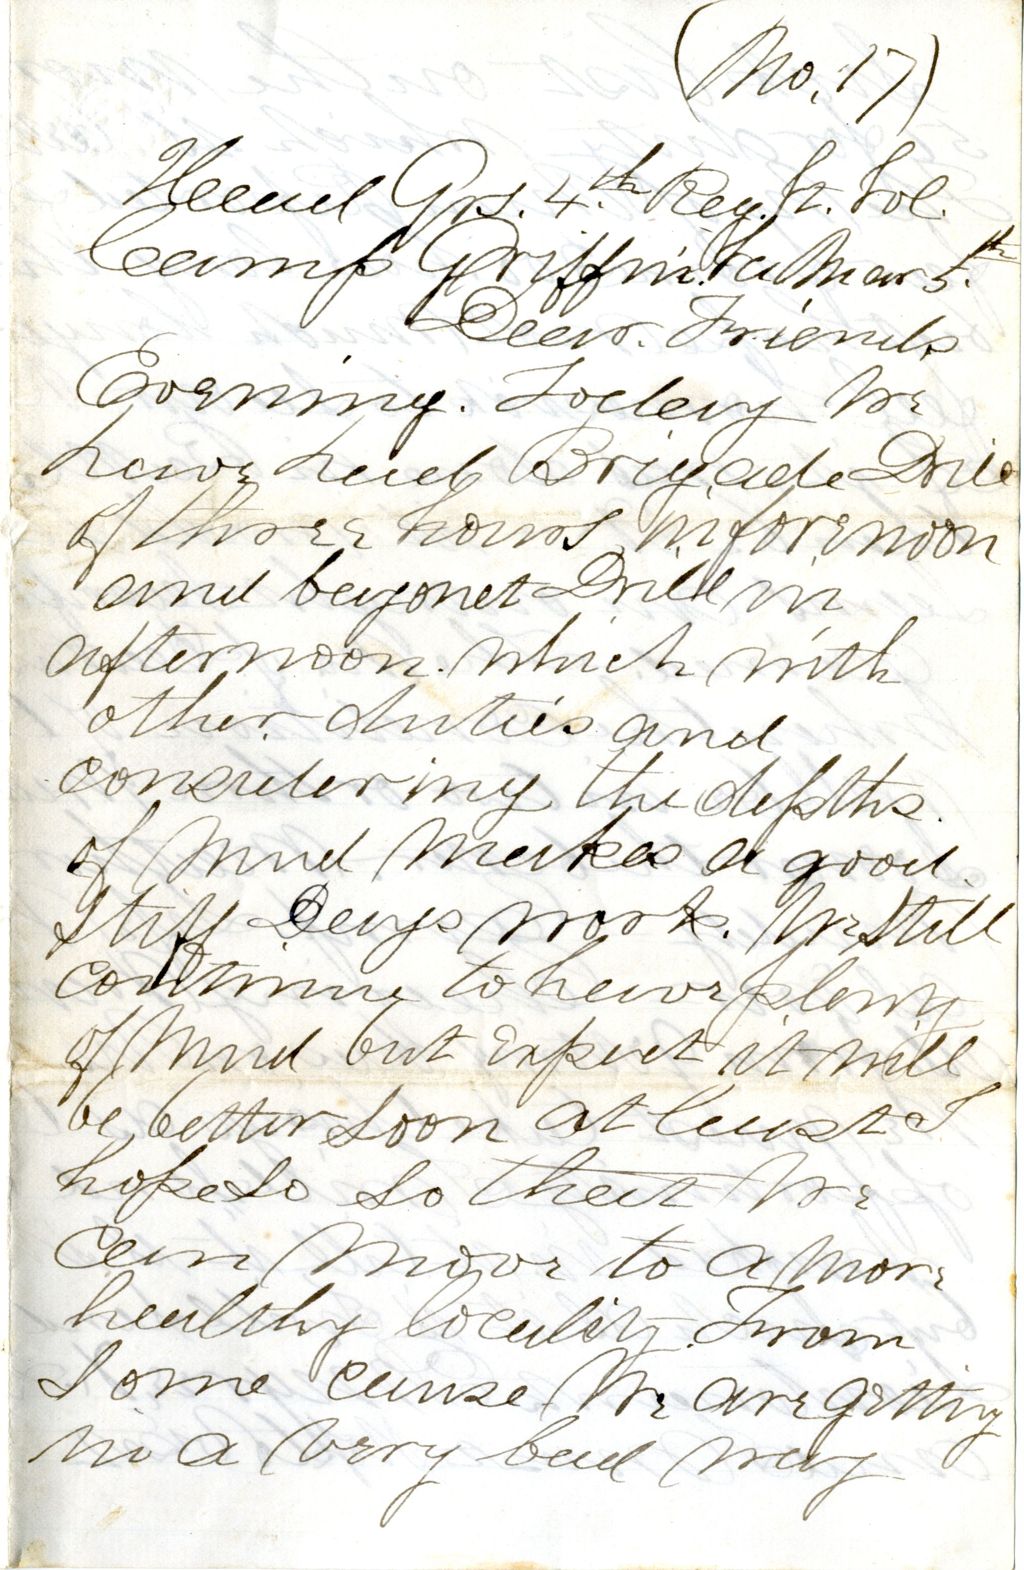 (No, 17)
Head Qrs. 4.th Reg. Vt. Vol.
Camp Griffin. Va Mar 5.th
Dear. Friends
Evening. Today We
have had Brigade Drill
of three hours in forenoon
and bayonet Drill in
afternoon. which with
other. duties and
considering the depths.
of Mud Makes a good.
Stiff Days work. We Still
continue to have plenty
of Mud but expect it will
be better soon at least I
hope so so that We
can Move to a More
healthy locality. From
Some cause We are getting
in a very bad way